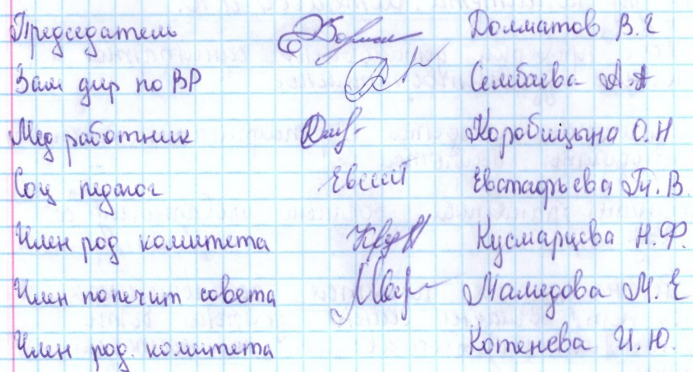 Председатель Долматов В.Е
Зам дир по ВР Сембаева А.А
Мед работник Коробицына О.Н
Соц педагог Евстафьева Т.В.
Член род комитета Кусмарцева Н.Ф.
Член попечит совета Мамедова М.Е
Член род. комитета Котенева И.Ю.